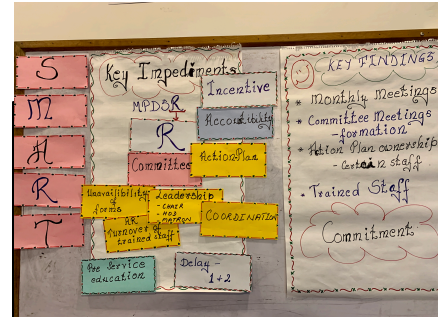 S
M
A
R
T
Key Impediments
MPDSR
R
Committee
Incentive
Accountibility
Action Plan
Unavailibility
of
forms
Leadership
- CHAIR
- HOD
MATRON
COORDINATION
HR
Turnover of
trained staff
Pre Service
education
Delay -
1+2
KEY FINDINGS
* Monthly Meetings
* Committee Meetings
- formation
* Action Plan ownership
- certain staff
* Trained Staff
Commitment